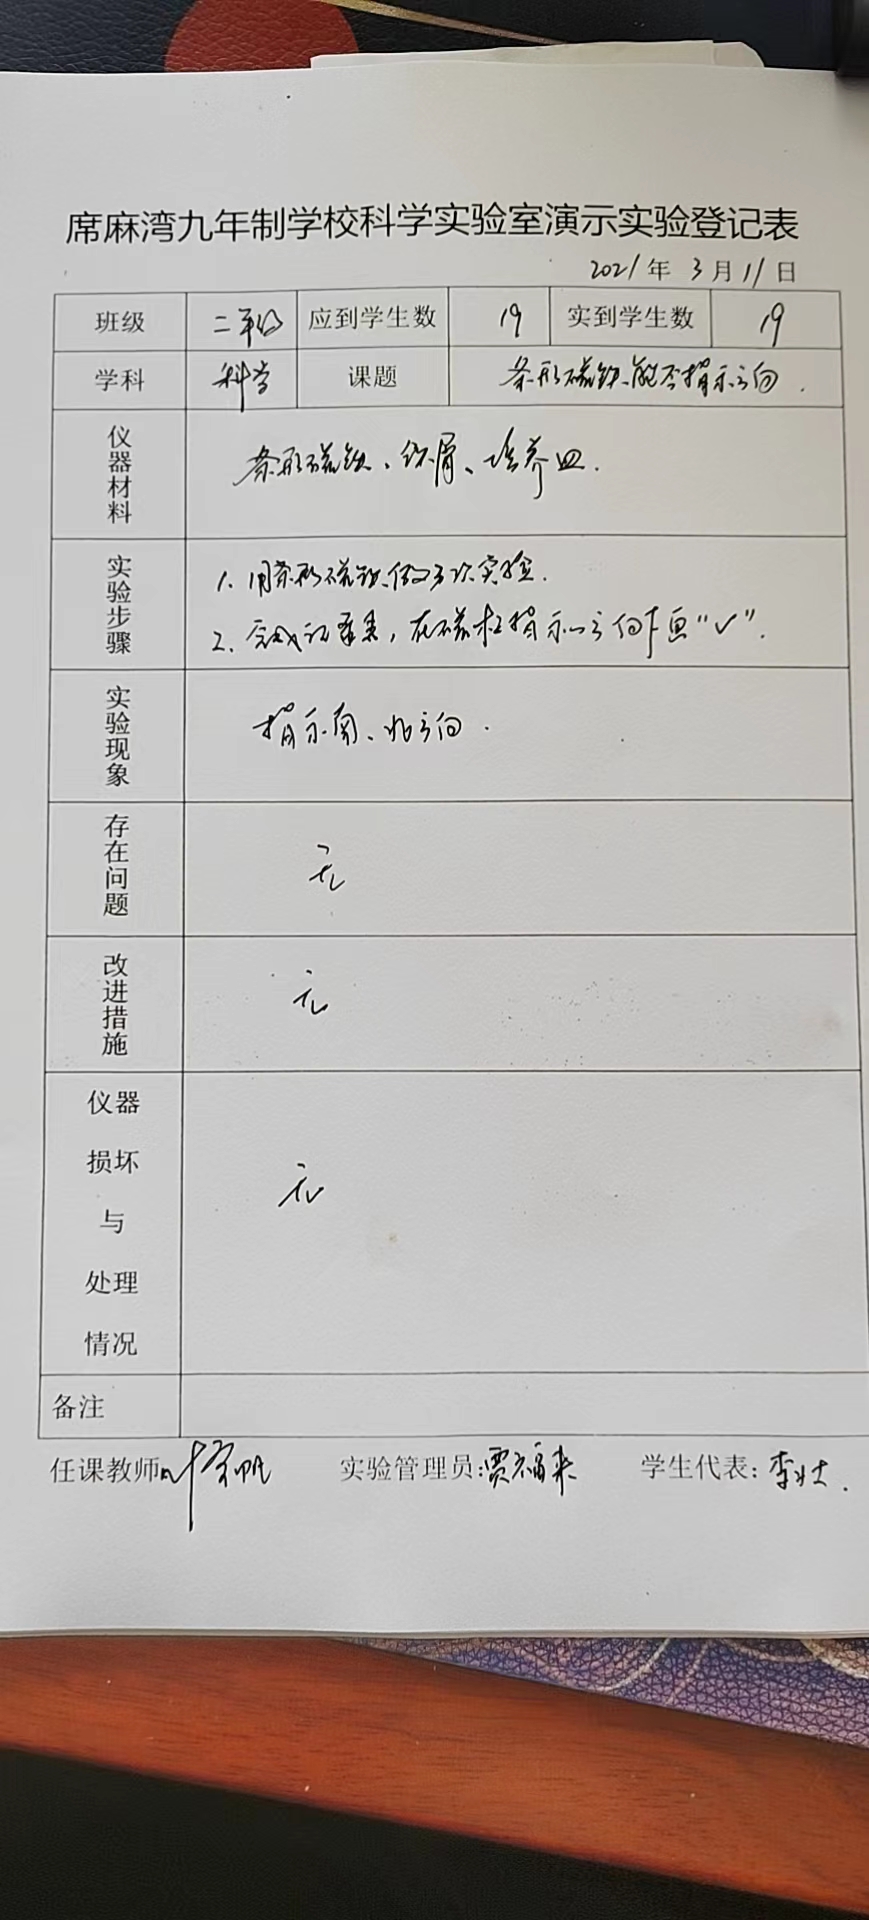 席麻湾九年制学校科学实验室演示实验登记表
2021年 3月11日
班级 二年级 应到学生数 19 实到学生数 19
学科 科学 课题 条形磁铁能否指示方向.
仪器材料 条形磁铁、铁屑、培养皿.
实验步骤 1. 用条形磁铁做多次实验.
2. 完成记录表,在磁极指示的方向下画“✓”.
实验现象 指示南、北方向.
存在问题 无
改进措施 无
仪器损坏与处理情况 无
备注
任课教师 叶 实验管理员:贾福来 学生代表:李壮.